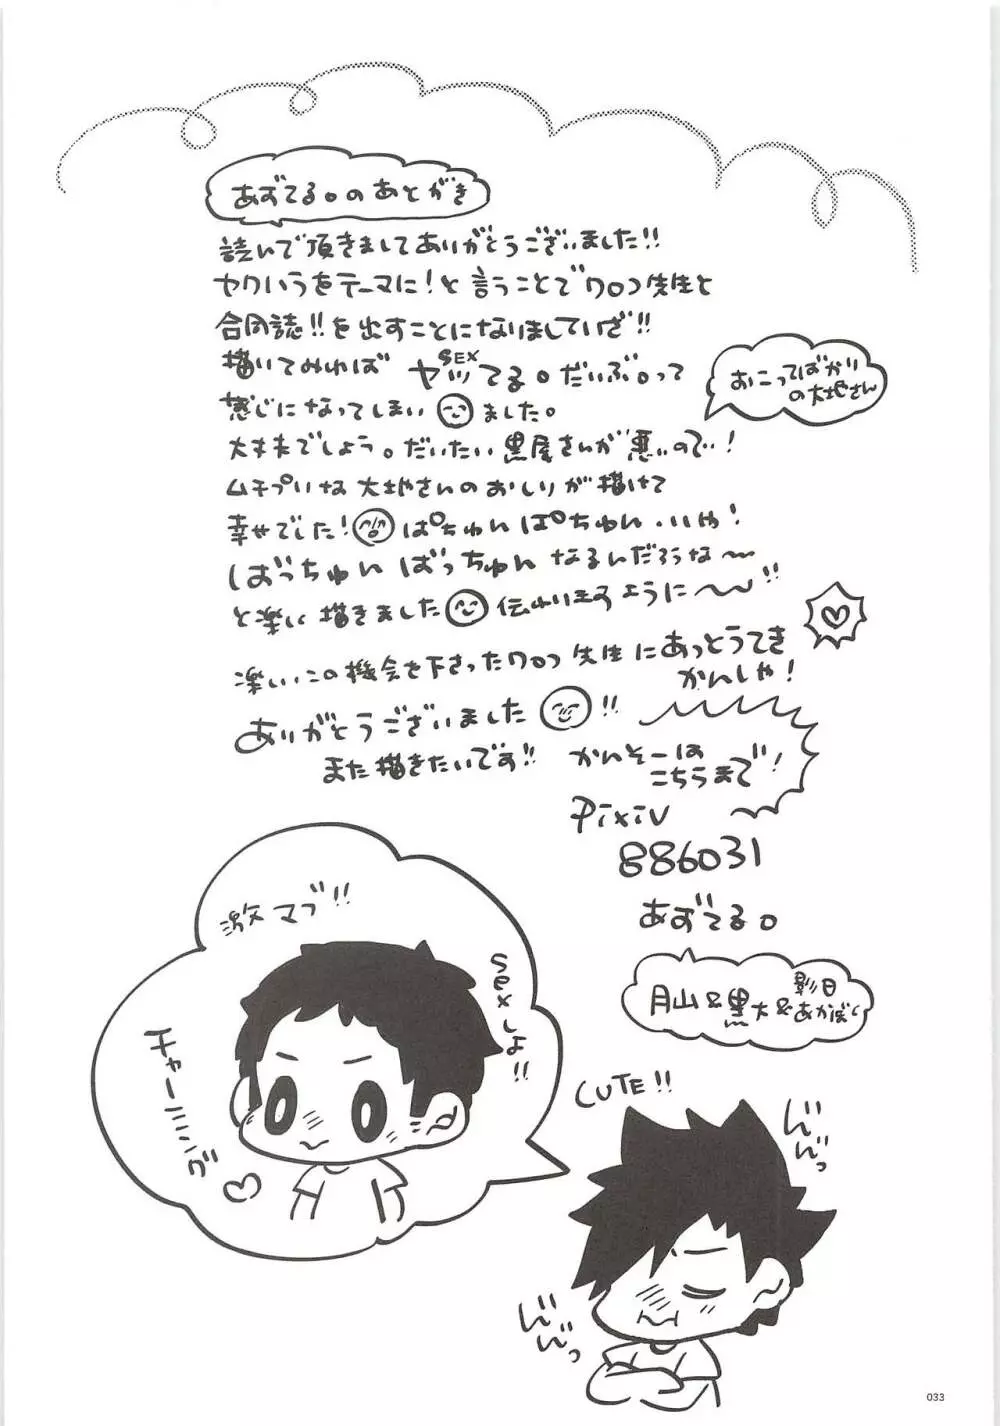 あずてる。のあとがき
読んで頂きましてありがとうございました!!
ヤクいうをテーマに!と言うことでワロコ先生と
合同誌!!を出すことになりましていざ!!
描いてみれば ヤッてる。だいぶ。って
SEX
感じになってしまいました。
おこってばかり
の大地さん
大丈夫でしょう。だいたい黒尾さんが悪いので!
ムチプリな大地さんのおしりが描けて
幸せでした!ぱちゅんぱちゅん・いや!
ばっちゅんばっちゅんなるんだろうな〜
と楽しい描きました伝わりますように〜!!
楽しいこの機会を下さったワロコ先生にあっとうてき
かんしゃ!
ありがとうございました!!
また描きたいです!! かんそーは
こちらまで!
Pixiv
886031
あずてる。
月山&黒大&影日
あかぼく
激マブ!!
sexしよ!!
チャーミング
CUTE!!
んんっ
んんっ
033